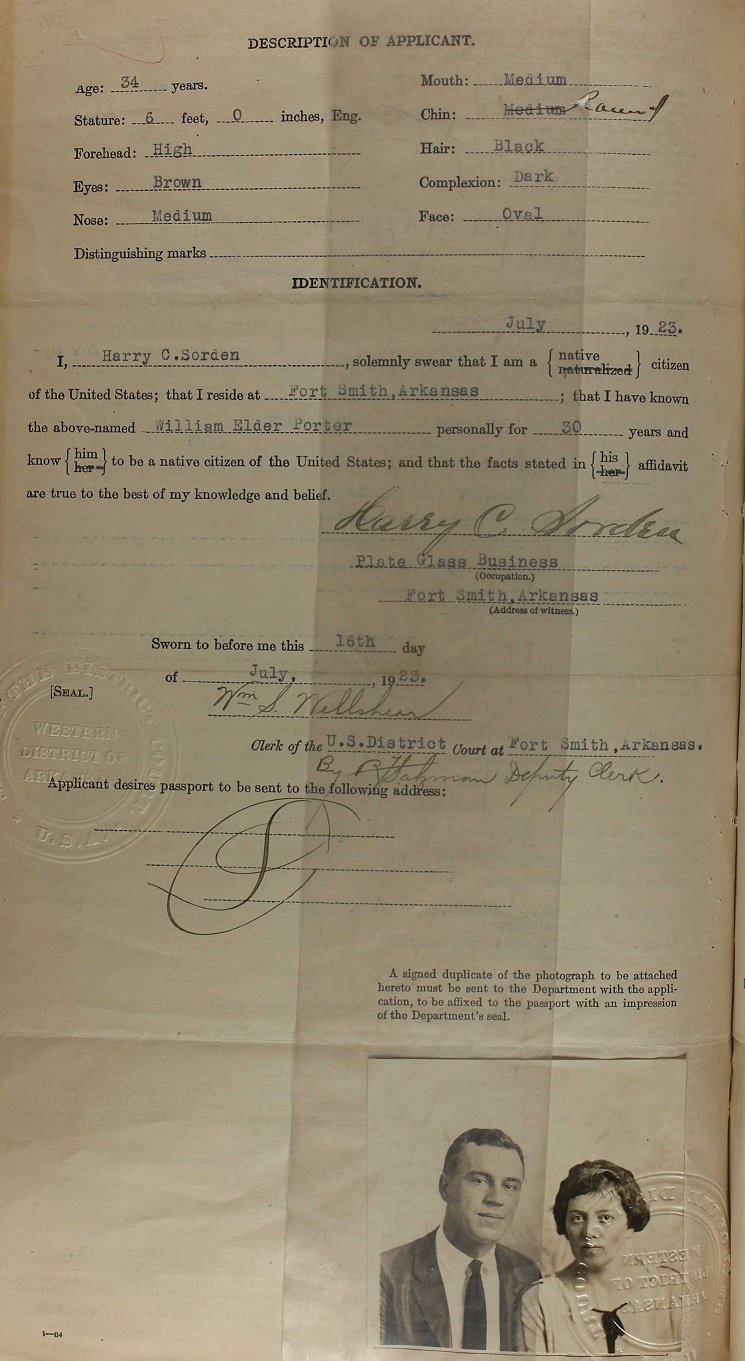 DESCRIPTION OF APPLICANT.
Age: 34 years.
Mouth: Medium
Stature: 6 feet, 0 inches, Eng.
Chin: Medium Round
Forehead: High
Hair: Black
Eyes: Brown
Complexion: Dark
Nose: Medium
Face: Oval
Distinguishing marks
IDENTIFICATION.
July, 1923.
I, Harry C.Sorden, solemnly swear that I am a {native naturalized} citizen
of the United States; that I reside at Fort Smith,Arkansas; that I have known
the above-named William Elder Porter personally for 30 years and
know {him her} to be a native citizen of the United States; and that the facts stated in {his her} affidavit
are true to the best of my knowledge and belief.
Harry C. Sorden
Plate Glass Business
(Occupation.)
Fort Smith,Arkansas
(Address of witness.)
Sworn to before me this 16th day
of July, 1923.
[SEAL.]
Wm S. Wellshear
Clerk of the U.S.District Court at Fort Smith,Arkansas.
By Deputy Clerk.
Applicant desires passport to be sent to the following address:
WESTERN
DISTRICT OF
ARKANSAS
U.S.A.
A signed duplicate of the photograph to be attached
hereto must be sent to the Department with the appli-
cation, to be affixed to the passport with an impression
of the Department's seal.
WESTERN
DISTRICT OF
ARKANSAS
1—64